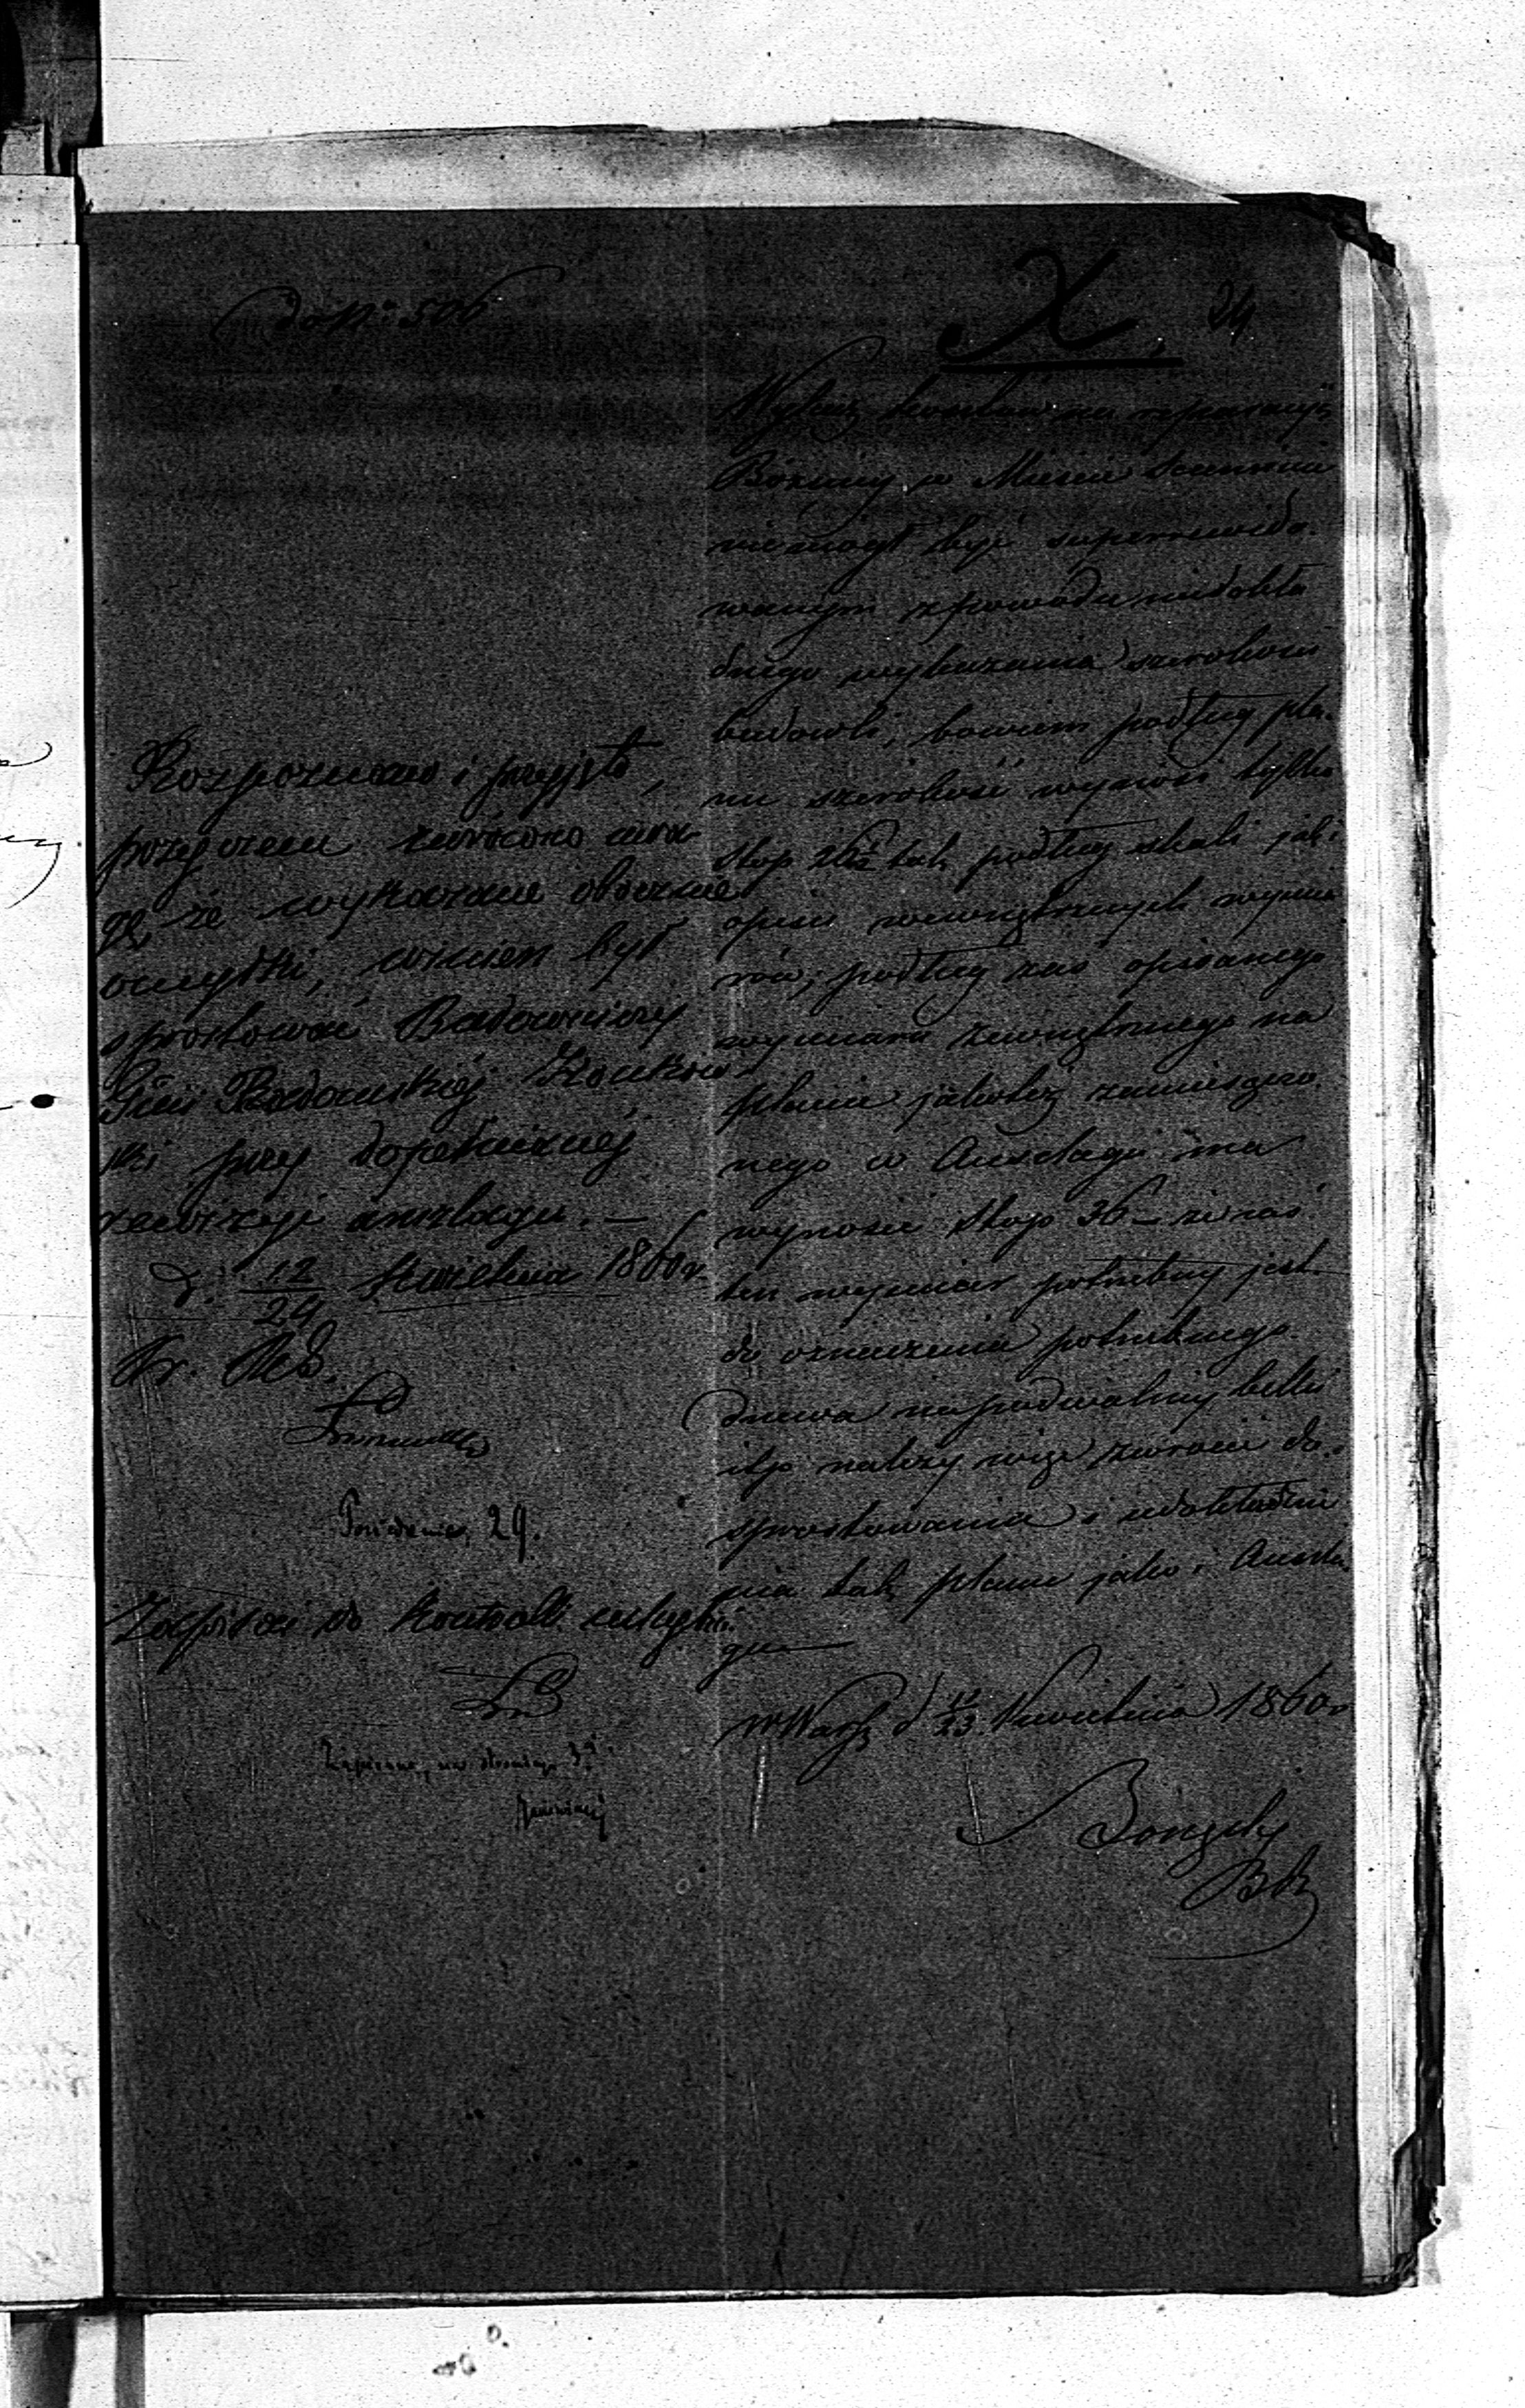 do Nº 506
X.
24
Wykaz kosztów na reparacyą
Bóżnicy w Mieście Sienninie
niemógł być superrewido-
wanym z powodu niedokła
dnego wykazania szerokości
budowli, bowiem podług pla-
nu szerokość wynosi tylko
stop tak podług skali jak i
opisu wewnętrznych wymia
rów; podług zaś opisanego
wymiaru zewnętrznego na
planie jakoteż zamieszczo
nego w Anszlagu ma
wynosić stop 36 – że zaś
ten wymiar potrzebny jest
do oznaczenia potrzebnego
drzewa na podwaliny belki
itp należy więc zwrócić do
sprostowania i udokładnie
nia tak planu jako i Anszla
gu
w Warsz d 11/23 Kwietnia 1860 r
Rozpoznano i przyjęto,
przyczem zwrócono uwa-
gę, że wykazane obecnie
omyłki, winien był
sprostować Budowniczy
Gbii Radomskiej
przy dopełnionej
rewizyi anszlagu. –
d. 12/24 Kwietnia 1860 r.
Posiedzenie, 29.
Zapisać do kontroli
Zapisano, na stronicy 3ej.